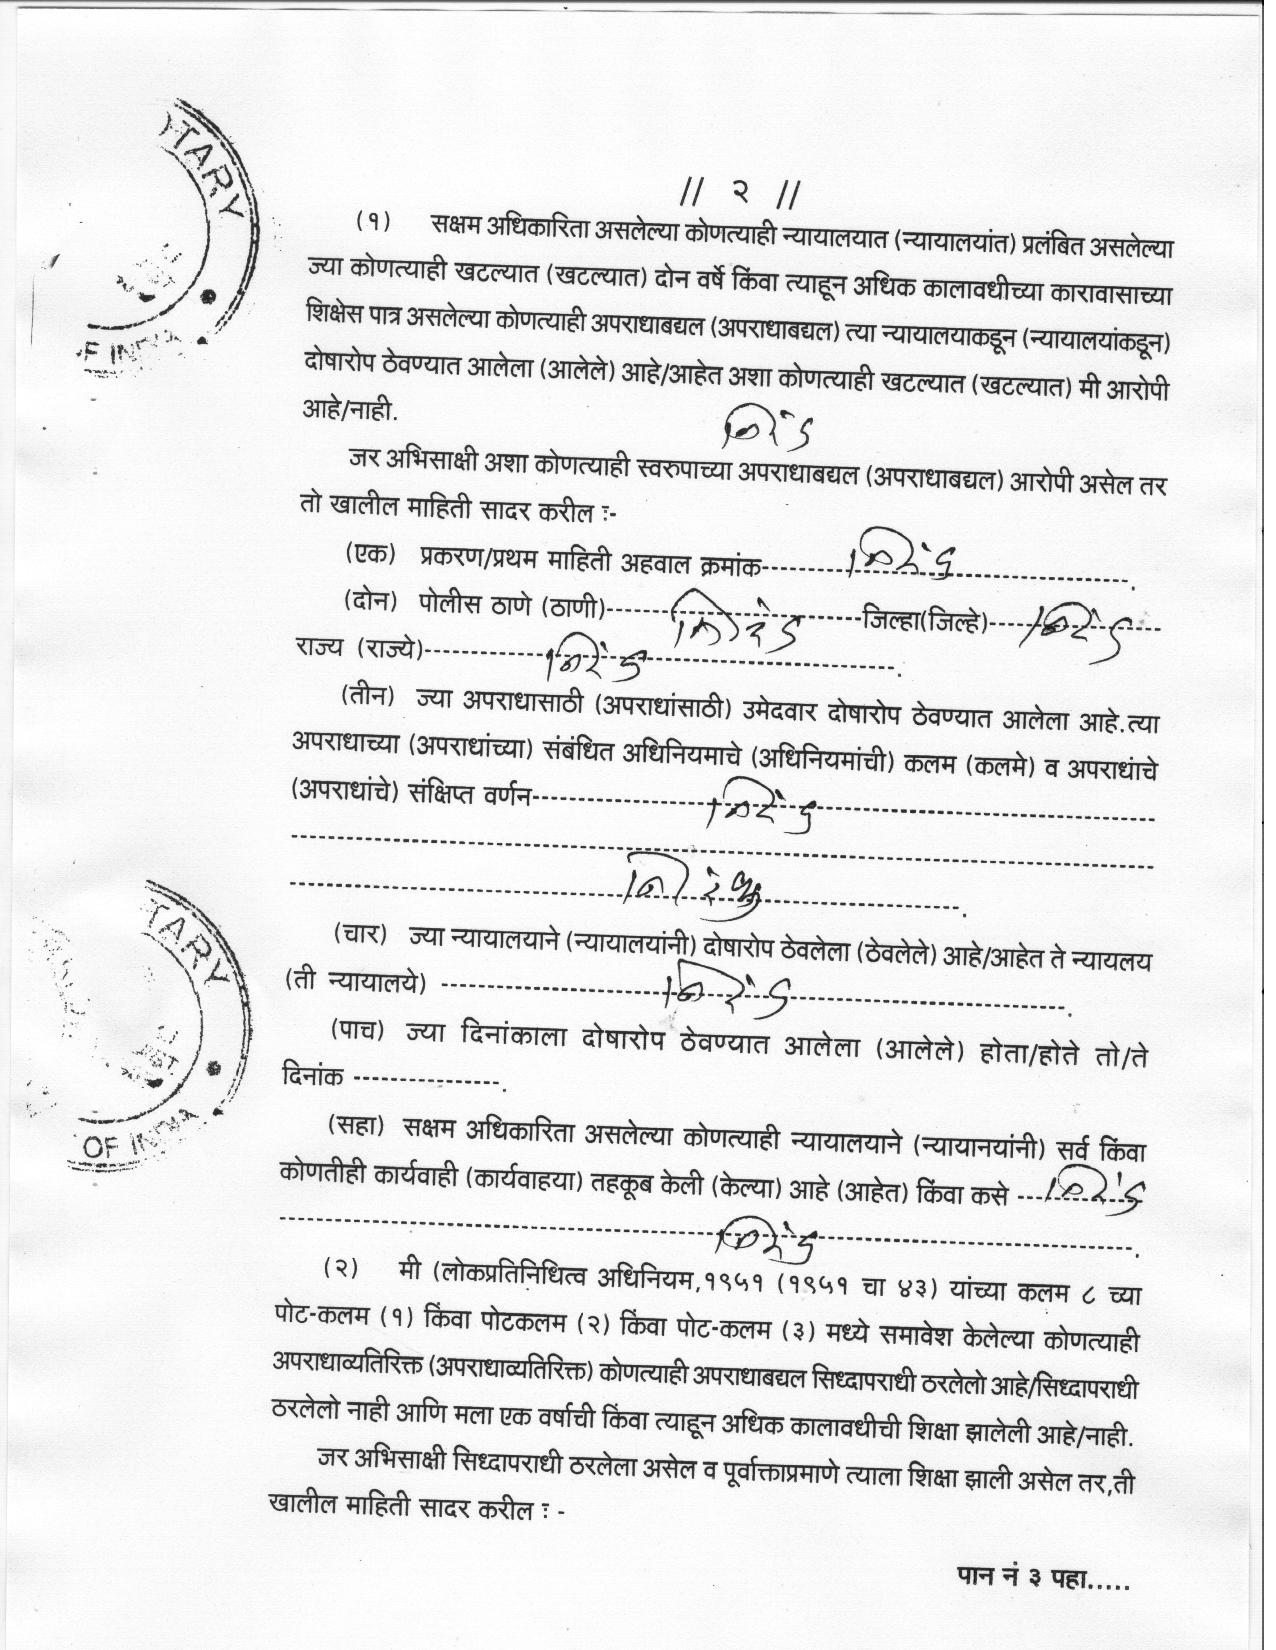 TARY
OF INDIA
// २ //
(१) सक्षम अधिकारिता असलेल्या कोणत्याही न्यायालयात (न्यायालयांत) प्रलंबित असलेल्या
ज्या कोणत्याही खटल्यात (खटल्यात) दोन वर्षे किंवा त्याहून अधिक कालावधीच्या कारावासाच्या
शिक्षेस पात्र असलेल्या कोणत्याही अपराधाबद्यल (अपराधाबद्यल) त्या न्यायालयाकडून (न्यायालयांकडून)
दोषारोप ठेवण्यात आलेला (आलेले) आहे/आहेत अशा कोणत्याही खटल्यात (खटल्यात) मी आरोपी
आहे/नाही. निरंक
जर अभिसाक्षी अशा कोणत्याही स्वरुपाच्या अपराधाबद्यल (अपराधाबद्यल) आरोपी असेल तर
तो खालील माहिती सादर करील :-
(एक) प्रकरण/प्रथम माहिती अहवाल क्रमांक------------निरंक------------------.
(दोन) पोलीस ठाणे (ठाणी)-------निरंक-------जिल्हा(जिल्हे)-----निरंक---
राज्य (राज्ये)------------निरंक------------------------.
(तीन) ज्या अपराधासाठी (अपराधांसाठी) उमेदवार दोषारोप ठेवण्यात आलेला आहे.त्या
अपराधाच्या (अपराधांच्या) संबंधित अधिनियमाचे (अधिनियमांची) कलम (कलमे) व अपराधांचे
(अपराधांचे) संक्षिप्त वर्णन------------------निरंक------------------------------------
---------------------------------------------------------------------------
------------------------------निरंक--------------------.
(चार) ज्या न्यायालयाने (न्यायालयांनी) दोषारोप ठेवलेला (ठेवलेले) आहे/आहेत ते न्यायलय
(ती न्यायालये) ----------------------निरंक--------------------------.
(पाच) ज्या दिनांकाला दोषारोप ठेवण्यात आलेला (आलेले) होता/होते तो/ते
दिनांक ----------------.
(सहा) सक्षम अधिकारिता असलेल्या कोणत्याही न्यायालयाने (न्यायानयांनी) सर्व किंवा
कोणतीही कार्यवाही (कार्यवाहया) तहकूब केली (केल्या) आहे (आहेत) किंवा कसे ---निरंक
---------------------------------------निरंक----------------------------------.
(२) मी (लोकप्रतिनिधित्व अधिनियम,१९५१ (१९५१ चा ४३) यांच्या कलम ८ च्या
पोट-कलम (१) किंवा पोटकलम (२) किंवा पोट-कलम (३) मध्ये समावेश केलेल्या कोणत्याही
अपराधाव्यतिरिक्त (अपराधाव्यतिरिक्त) कोणत्याही अपराधाबद्यल सिध्दापराधी ठरलेलो आहे/सिध्दापराधी
ठरलेलो नाही आणि मला एक वर्षाची किंवा त्याहून अधिक कालावधीची शिक्षा झालेली आहे/नाही.
जर अभिसाक्षी सिध्दापराधी ठरलेला असेल व पूर्वाक्ताप्रमाणे त्याला शिक्षा झाली असेल तर,ती
खालील माहिती सादर करील : -
TARY
OF INDIA
पान नं ३ पहा.....